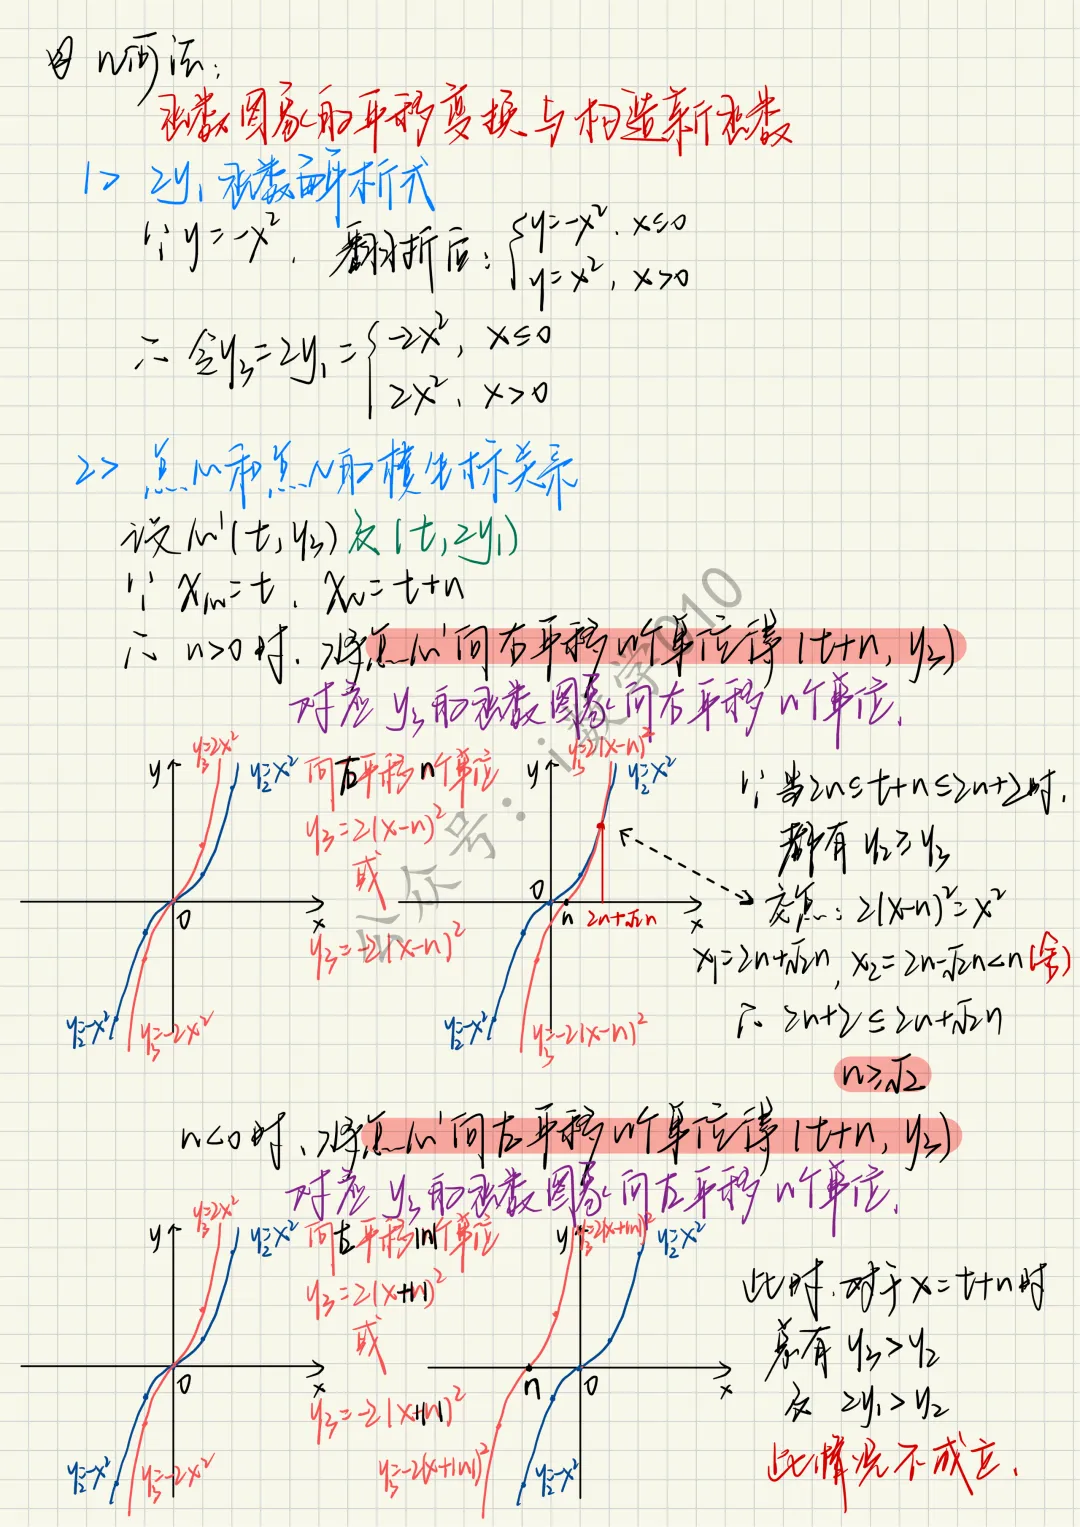 ② n 两法:
函数图象的平移变换与构造新函数
1> 2y₁函数的解析式
∵ y=-x², 翻折后: { y=-x², x≤0
y=x², x>0
∴ 令y₃=2y₁= { -2x², x≤0
2x², x>0
2> 点M和点N的横坐标关系
设M'(t, y₃) 及 (t, 2y₁)
∵ xₘ=t, x_N=t+n
∴ n>0时, 将点M'向右平移n个单位得(t+n, y₃)
对应y₃的函数图象向右平移n个单位.
y₃=2x²
y₂=x²
y
0
x
y₂=-x²
y₃=-2x²
向右平移n个单位
y₃=2(x-n)²
或
y₃=-2(x-n)²
y₃=2(x-n)²
y₂=x²
y
0
n
2n+√2n
x
y₂=-x²
y₃=-2(x-n)²
∵ 当2n≤t+n≤2n+2时,
都有 y₂≥y₃
交点: 2(x-n)²=x²
x₁=2n+√2n, x₂=2n-√2n<n(舍)
∴ 2n+2≤2n+√2n
n≥√2
n<0时, 将点M'向左平移n个单位得(t+n, y₃)
对应y₃的函数图象向左平移n个单位.
y₃=2x²
y₂=x²
y
0
x
y₂=-x²
y₃=-2x²
向左平移|n|个单位
y₃=2(x+|n|)²
或
y₃=-2(x+|n|)²
y₃=2(x+|n|)²
y₂=x²
y
n
0
x
y₃=-2(x+|n|)²
y₂=-x²
此时, 对于x=t+n时
总有 y₃>y₂
及 2y₁>y₂
此情况不成立.
公众号:i数学010